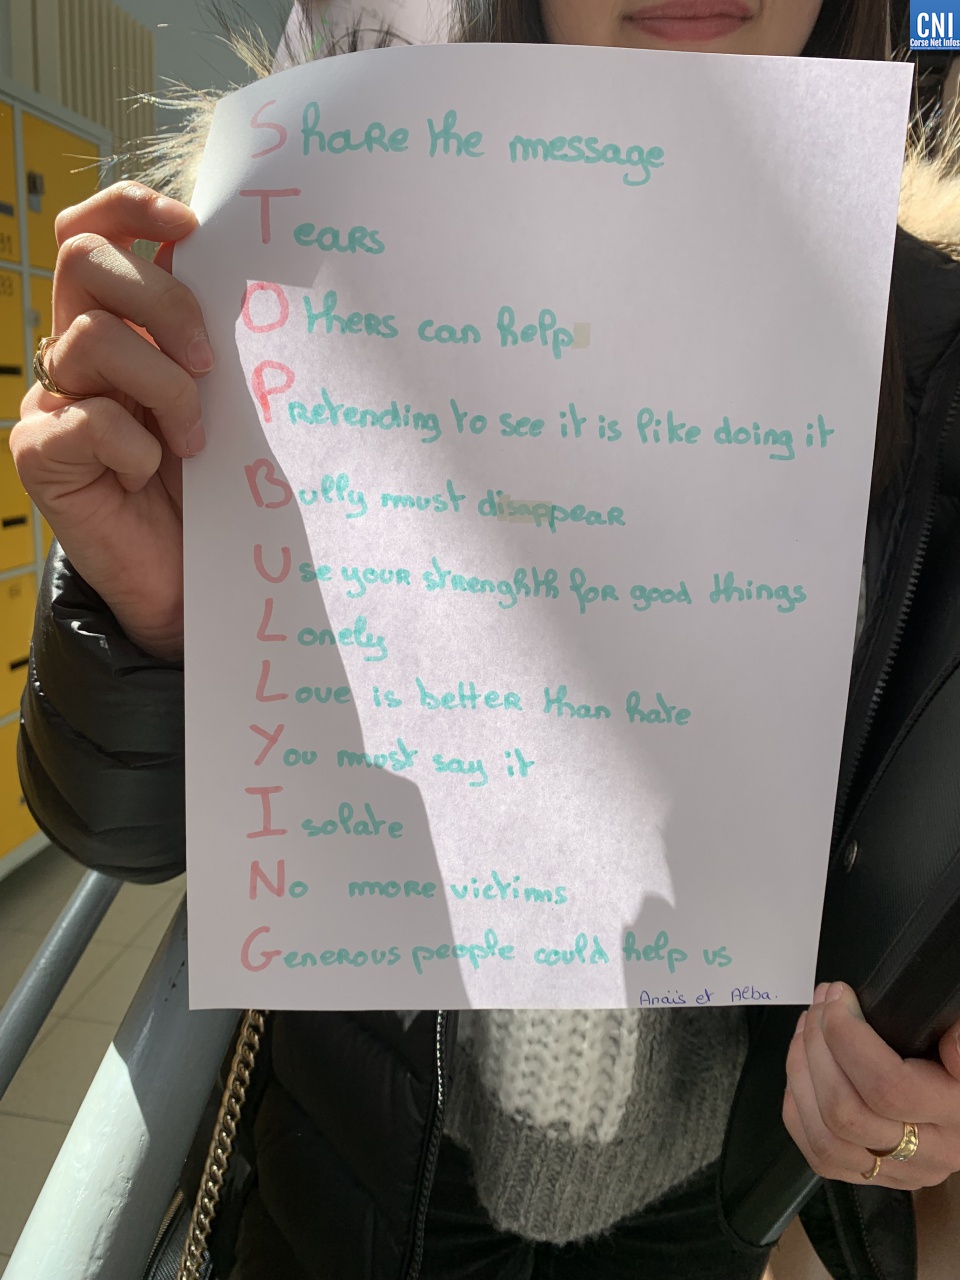 CNI
Corse Net Infos
Share the message
Tears
Others can help
Pretending to see it is like doing it
Bully must disappear
Use your strenghth for good things
Lonely
Love is better than hate
You must say it
Isolate
No more victims
Generous people could help us
Anaïs et Alba.